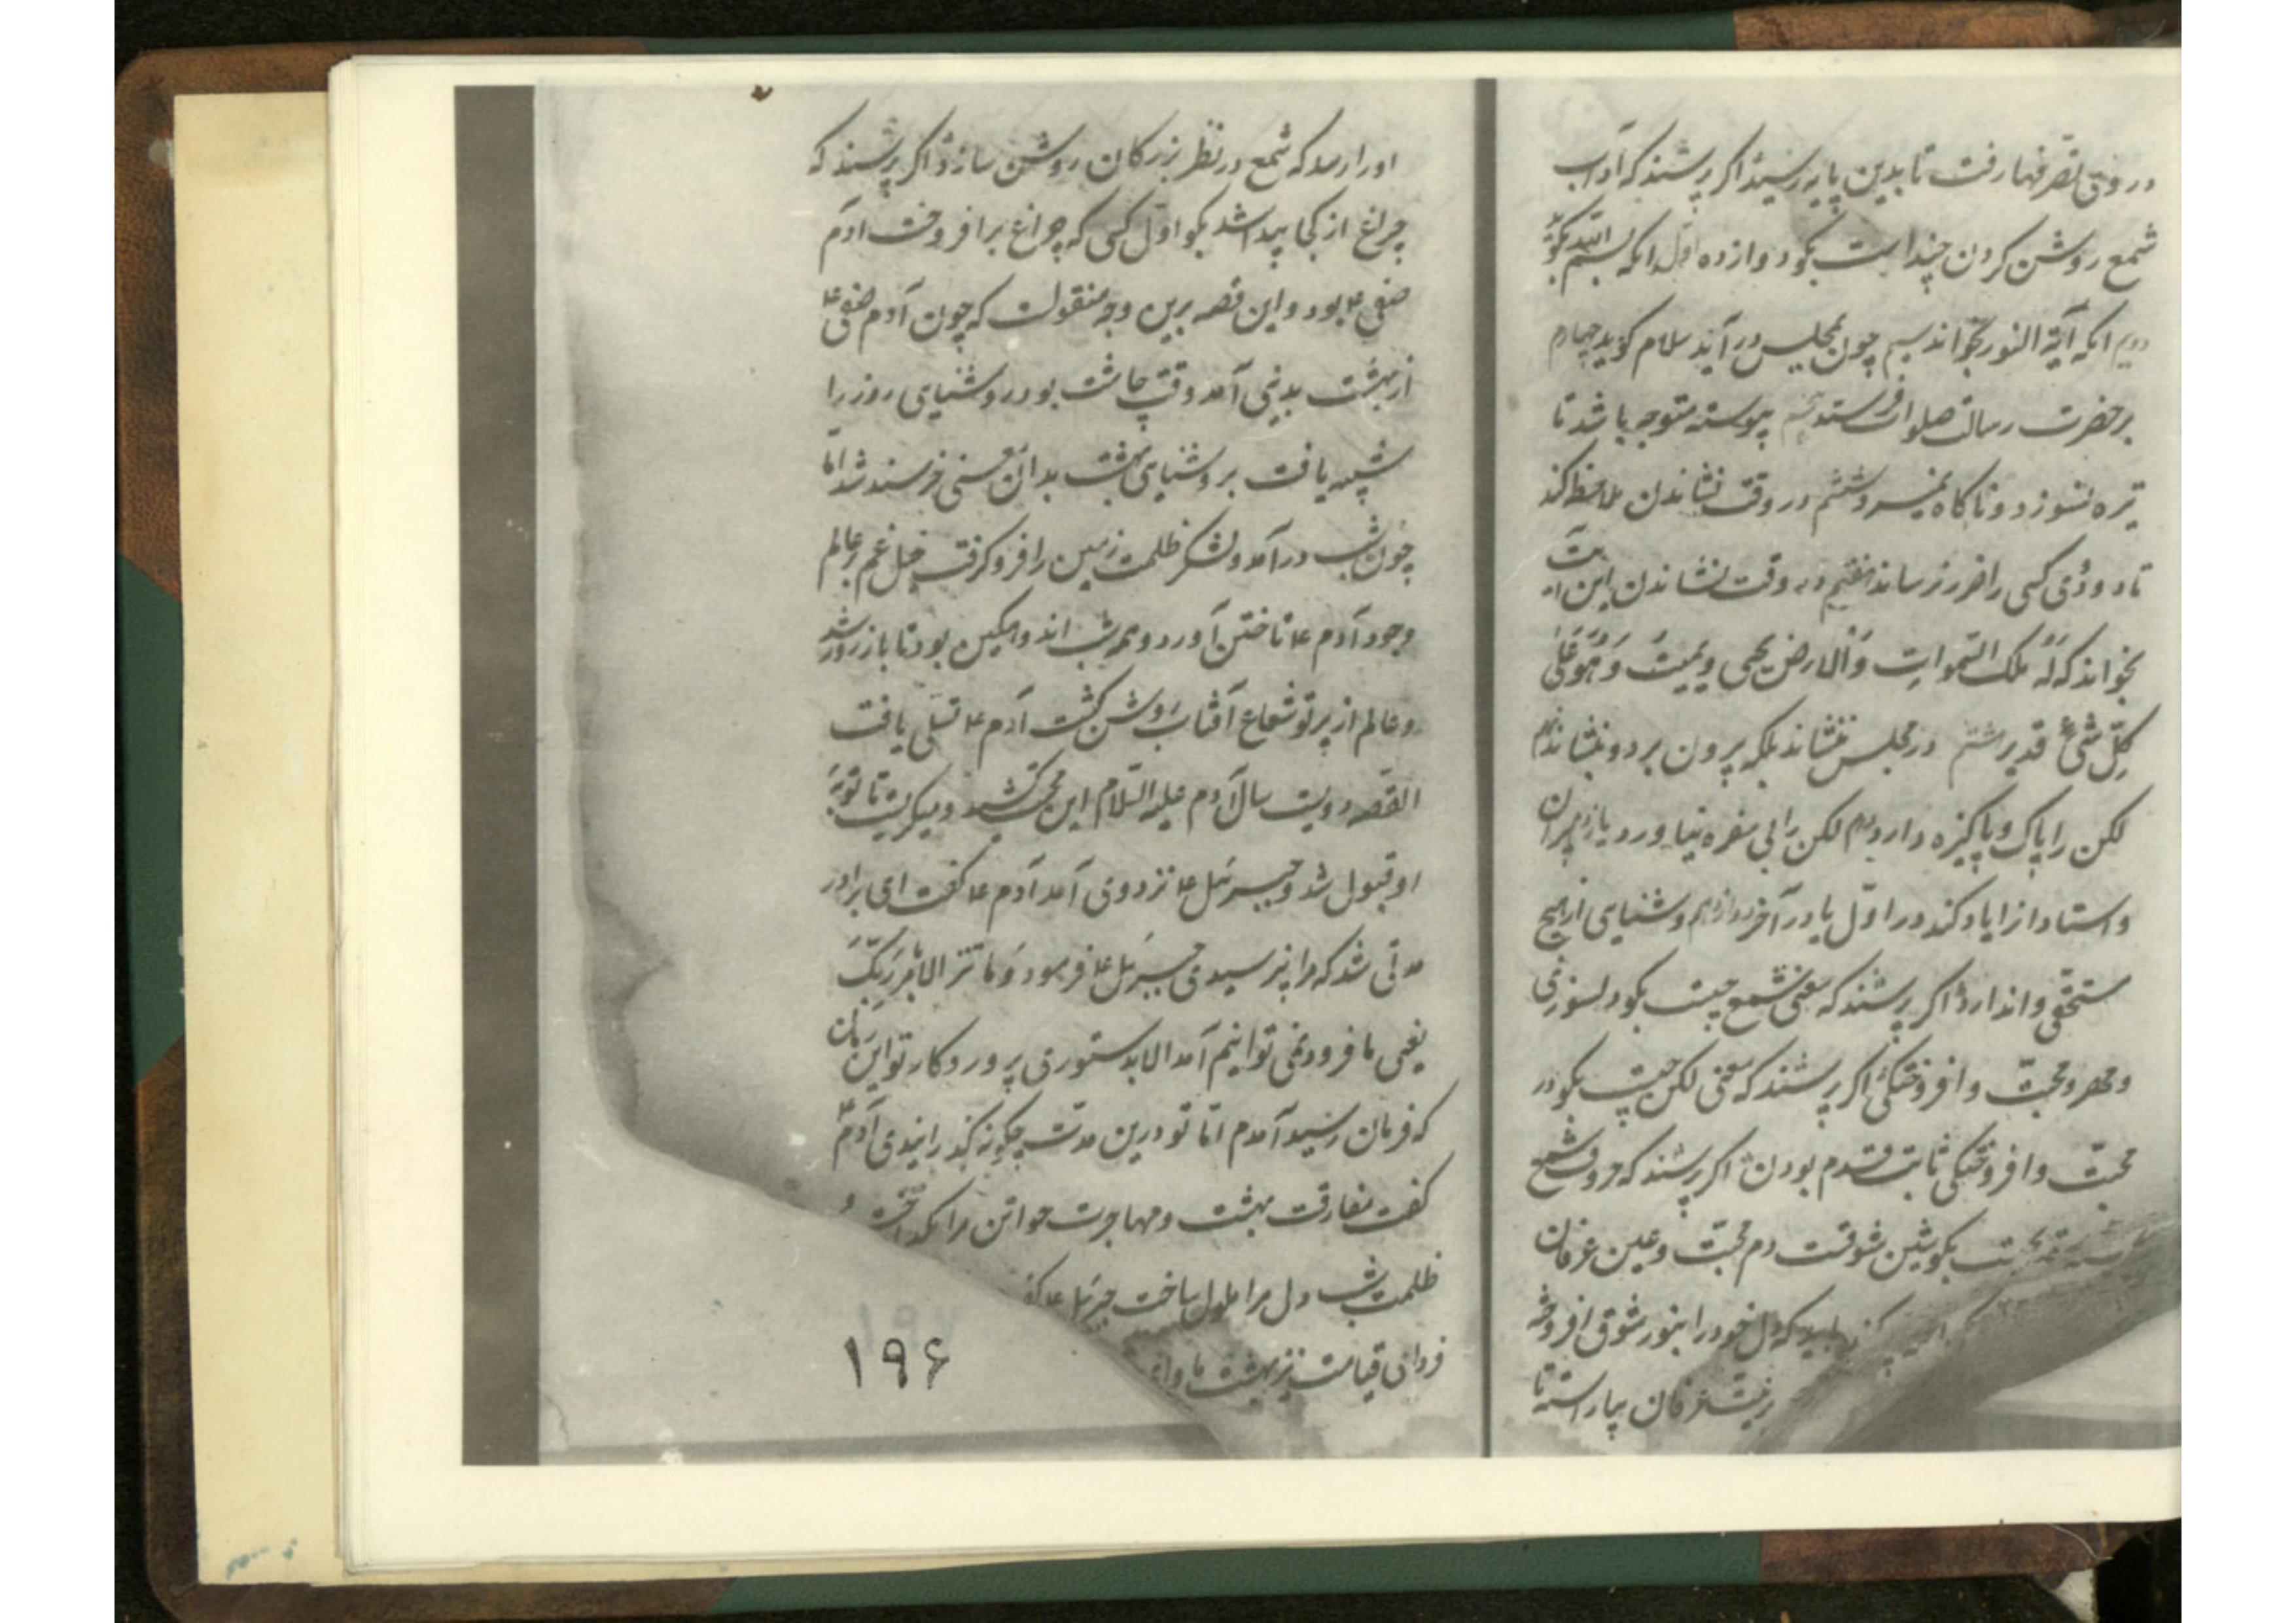 در وقت تصرفها رفت تا بدین پایه رسید اگر پرسند که آداب
شمع روشن کردن چند است بکو دوازده اول انکه بسم الله بکوید
دویم انکه آیة النور بخواند سیم چون بمجلس در آید سلام کوید چهارم
بر حضرت رسالت صلوات فرستد پیوسته متوجه باشد تا
تیره نسوزد و ناکاه نمیرد ششم در وقت نشاندن ملاحظه کند
تا دودی کسی را ضرر نرساند هفتم در وقت نشاندن این آیت
بخواند که لَهُ مُلک السّموات وَالارض یحیی ویمیت وَهُوَ عَلیٰ
کلّ شیءٍ قدیر هشتم در مجلس ننشاند بلکه برون برد و بنشاند نهم
لکن را پاک و پاکیزه دارد دهم لکن را بی سفره نیاورد یازدهم پیران
و استادانرا یاد کند در اول یا در آخر دوازدهم روشنیای از هیچ
مستحقی واندارد اکر پرسند که معنی شمع چیست بکو دلسوزی
ومهر و محبّت و افروختکی اکر پرسند که معنی لکن چیست بکو در
محبّت و افروختکی ثابت قدم بودن اکر پرسند که حروف شمع
بکو شین شوقست و میم محبّت و عین عرفان
باید که دل خود را بنور شوق افروخته
بزینت عرفان بیاراسته تا
او را رسد که شمع در نظر بزرکان روشن سازد اکر پرسند که
چراغ از کجا پیدا شد بکو اوّل کسی که چراغ برافروخت آدم
صفی ع بود و این قصه برین وجه منقولست که چون آدم صفی ع
از بهشت بدنیی آمد وقت چاشت بود روشنیای روز را
شبیه یافت بروشنیای بهشت بدان معنی خرسند شد امّا
چون شب درآمد و لشکر ظلمت زمین را فرو کرفت خیل غم بر عالم
وجود آدم ع تاختن آورد و همه شب اندوهکین بود تا باز روز شد
وعالم از پرتو شعاع آفتاب روشن کشت آدم ع تسلی یافت
القصه دویست سال آدم علیه السّلام این محنت کشید و میکریست تا توبهٔ
او قبول شد و جبرئیل ع نزد وی آمد آدم ع کفت ای برادر
مدتی شد که مرا نپرسیدی جبرئیل ع فرمود وَما نتنزل الا بامر رَبِّکَ
یعنی ما فرود نمی توانیم آمد الا بدستوری پروردکار تو این زمان
که فرمان رسید آمدم امّا تو درین مدت چکونه کذرانیدی آدم ع
کفت مفارقت بهشت و مهاجرت حوا تن مرا بکداخت و
ظلمت شب دل مرا ملول ساخت جبرئیل ع کفت
فردای قیامت نیز بهشت
۱۹۶